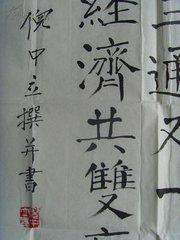 通又一
經濟共雙
倪中立撰并書